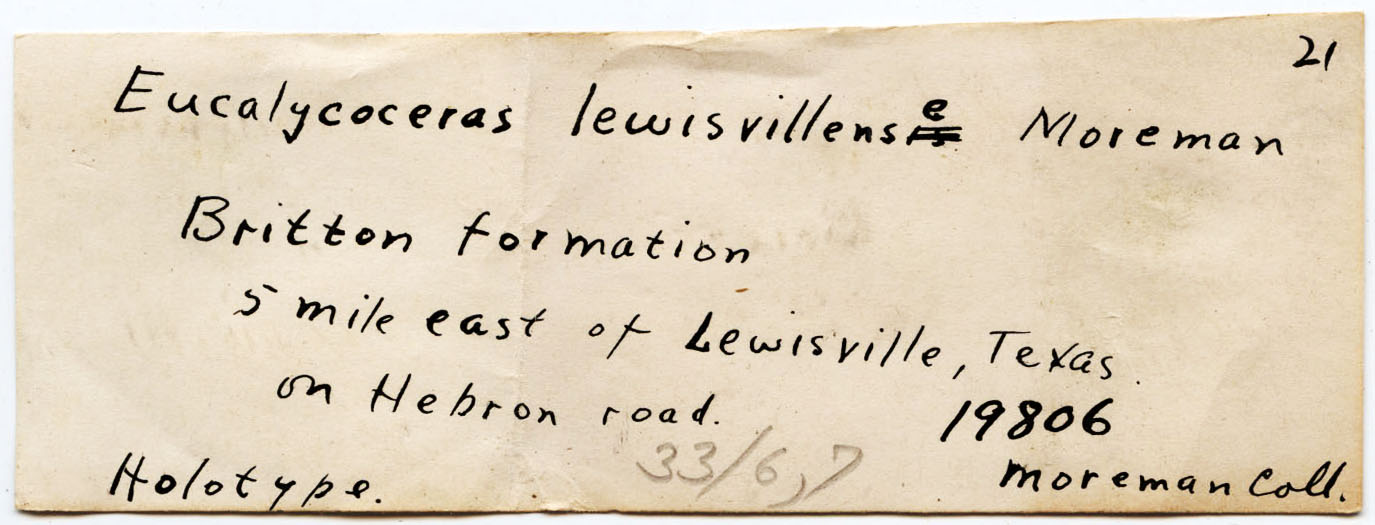 21
Eucalycoceras lewisvillense Moreman
Britton formation
5 mile east of Lewisville, Texas.
on Hebron road.
19806
33/6,7
Holotype.
Moreman Coll.